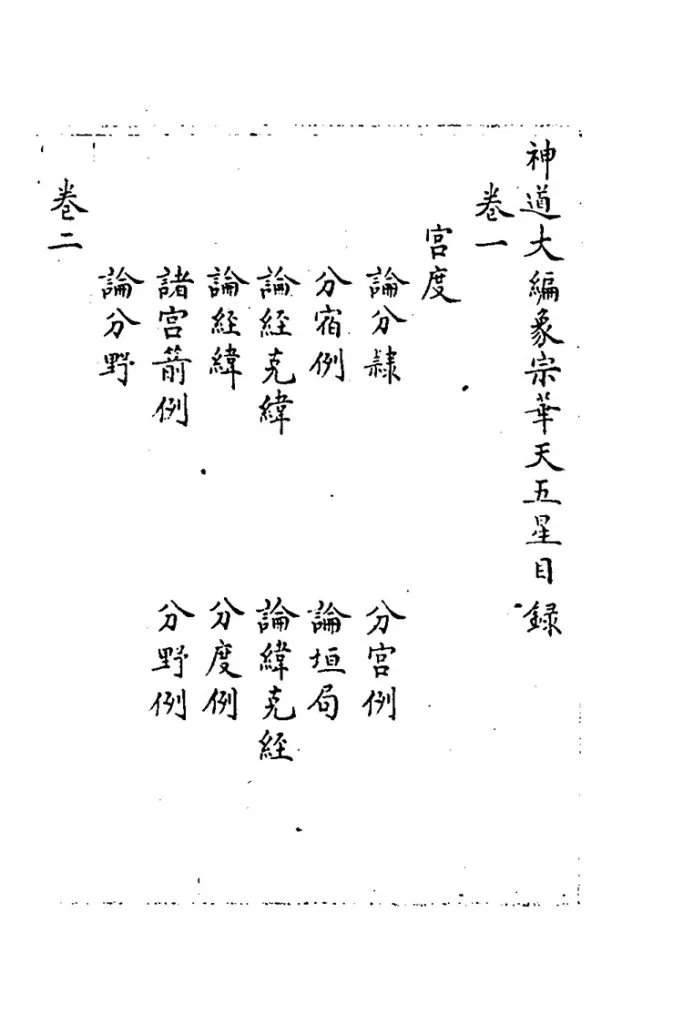 神道大編象宗華天五星目録
卷一
宫度
論分隷
分宫例
分宿例
論垣局
論經克緯
論緯克經
論經緯
分度例
諸宫箭例
分野例
論分野
卷二